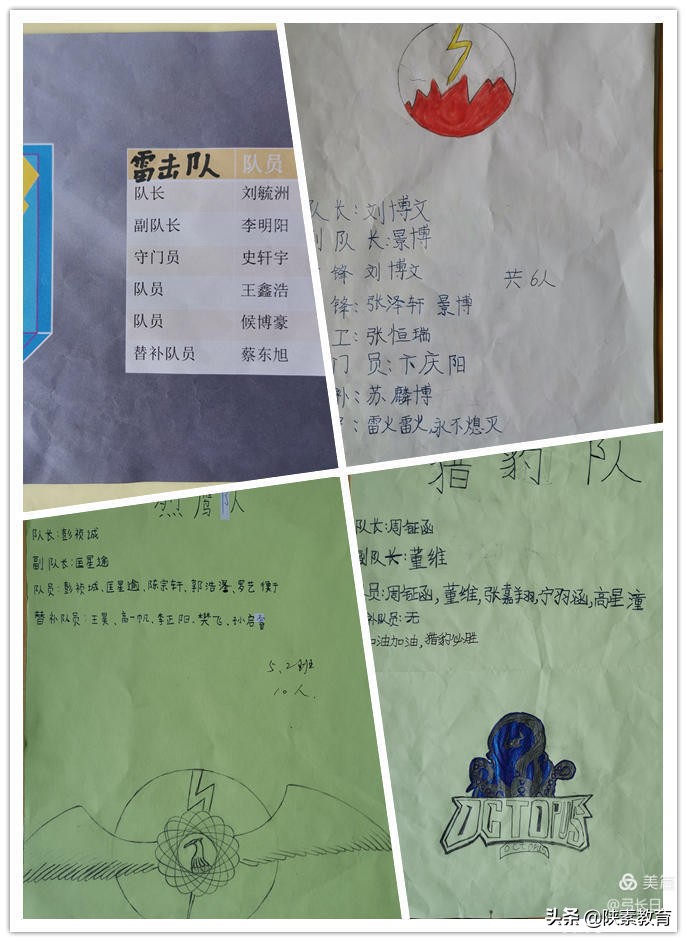 雷击队 队员
队长 刘毓洲
副队长 李明阳
守门员 史轩宇
队员 王鑫浩
队员 候博豪
替补队员 蔡东旭
队长:刘博文
副队长:景博
锋 刘博文
共6人
锋:张泽轩 景博
工:张恒瑞
门员:卞庆阳
补:苏麟博
:雷火雷火,永不熄灭
烈鹰队
队长:彭祯城
副队长:匡星逾
队员:彭祯城、匡星逾、陈宗轩、郭浩
替补队员:王昊、高一帆、李正阳、樊飞、孙启
5.2班
10人.
猎豹队
队长:周钲函
副队长:董维
员:周钲函,董维,张嘉翔,宁羽涵,高星潼
补队员:无
加油加油,猎豹必胜
OCTOPUS
OCTOPUS
美篇
@弓长日
头条 @陕素教育